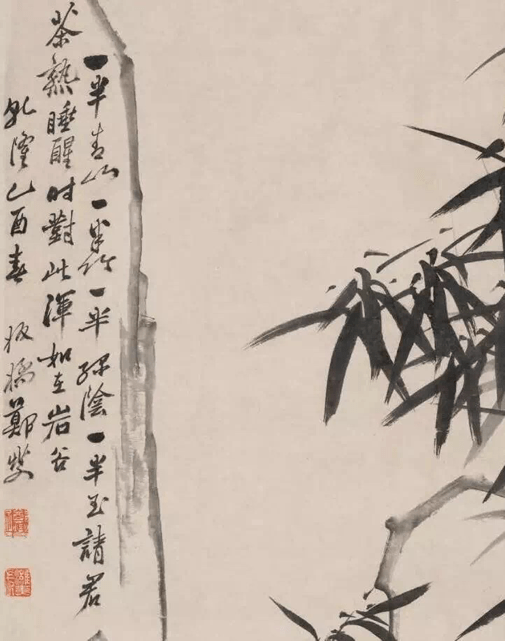 一半青山一半竹一半綠陰一半玉請君
茶熟睡醒時對此渾如在岩谷
乾隆乙酉春 板橋鄭燮